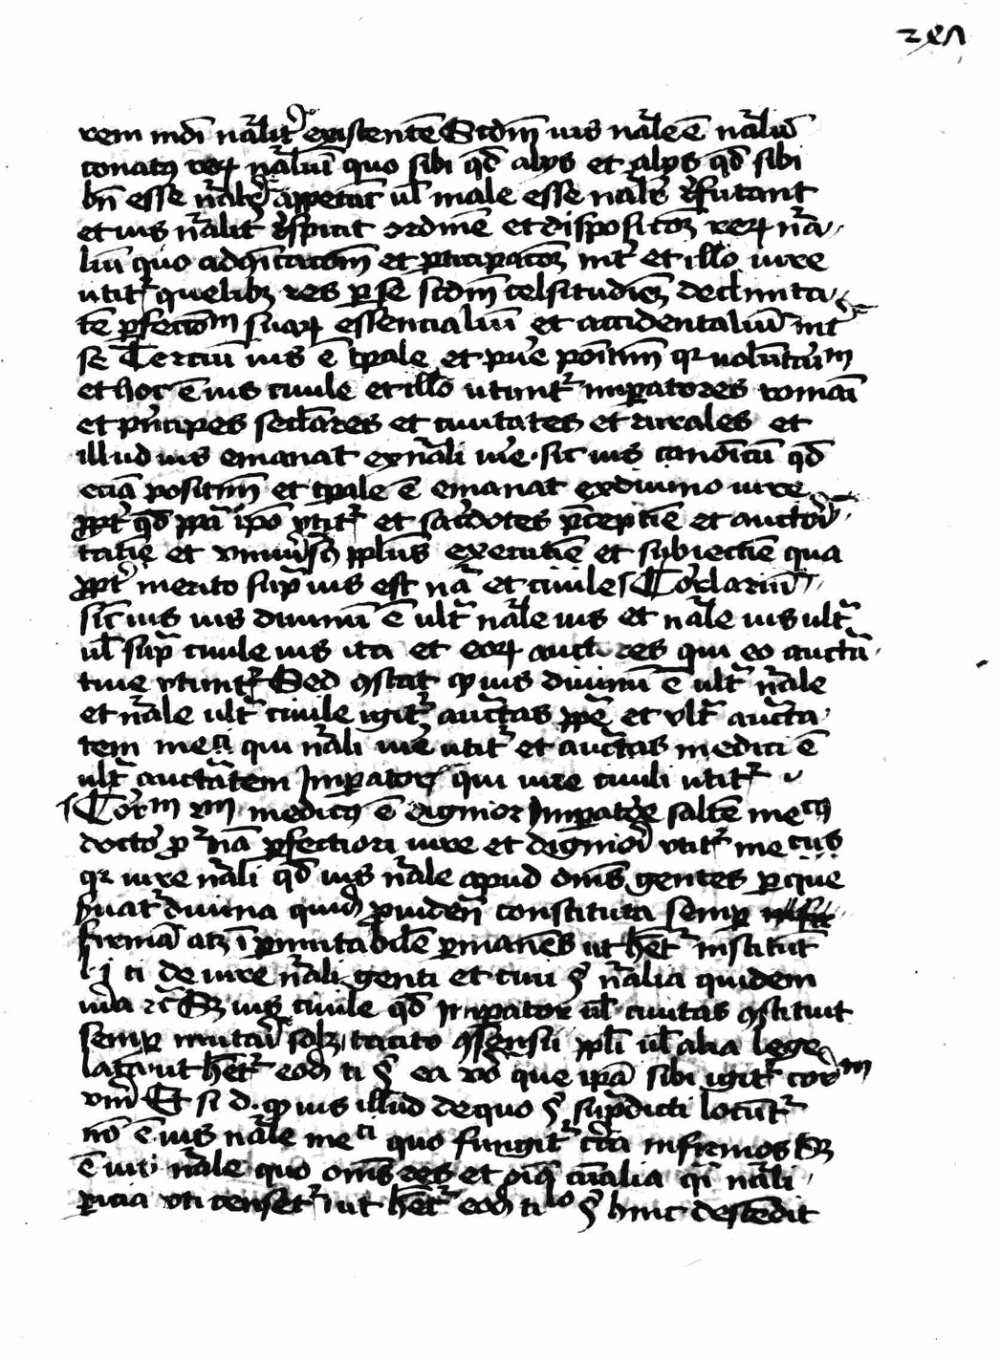 rem mdi nalit existente Scdm ius nale e naliu
conatus reru naliu quo sibi qd alys et alys qd sibi
bn esse nalit appetat ul male esse nalit refutant
et ius nalit respicit ordine et dispositoem reru na
liu quo adequatioem et participatoem int et illo iure
utit quelibz res per se scdm celsitudiem declinita
te perfectiom suaru essencialiu et accidentaliu int
se Terciu ius e tpale et pure poitium qr uoluntariu
et hoc e ius ciuile et illo utunt imperatores romani
et principes seculares et ciuitates et rurales et
illud ius emanat ex nali iure sic ius canoicu qd
ecia positiuu et tpale e emanat ex diuino iure
ppt qd ppa ipo utit et sacerdotes preceptie et auctori
tatie et uniuersus pplus executie et subiectie qua
ppt merito supra ius est na et ciuile Corelariu
sic ius ius diuinu e ult nale ius et nale ius ult
ul supra ciuile ius ita et eoru auctores qui eo aucta
tiue utunt Sed constat q ius diuinu e ult nale
et nale ult ciuile igit auctas ppe et ult aucta
tem meci qui nali iure utit et auctas medici e
ult auctatem Imperatoris qui iure ciuili utit
Corm medicus e dignior Imperatore salte mecus
doctor pro na perfectiori iure et digniori utit mecus
qr iure nali qd ius nale apud oms gentes pereque
seruat diuina quidem prouiden constituta semper
firma atz i permutabile permanens ut het institut
l j ti de iure nali genti et ciui § nalia quidem
iura rc Sz ius ciuile qd Imperator ul ciuitas constituit
semper mutari solz tacito consensu ppli ul alia lege
lata ut het eodem ti § ea uero que ipa sibi igit corm
uerum Et si d. q ius illud de quo § supradicti locunt
no e ius nale meci quo fungit circa infirmos Sz
e ius nale quo oms res et oiq aialia qi nali
pericia uti censet ut het eodem tilo § hinc descedit